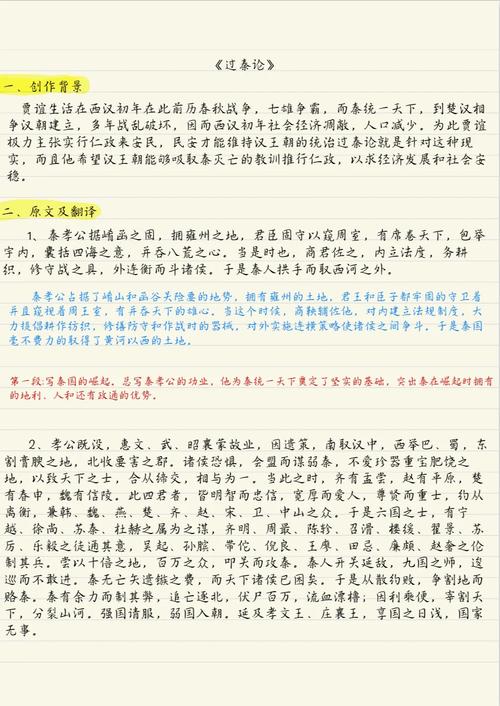 《过秦论》
一、创作背景
贾谊生活在西汉初年在此前历春秋战争，七雄争霸，而秦统一天下，到楚汉相
争汉朝建立，多年战乱破坏，因而西汉初年社会经济凋敝，人口减少。为此贾谊
极力主张实行仁政来安民，民安才能维持汉王朝的统治过秦论就是针对这种现
实，而且他希望汉王朝能够吸取秦灭亡的教训推行仁政，以求经济发展和社会安
稳。
二、原文及翻译
1、秦孝公据崤函之固，拥雍州之地，君臣固守以窥周室，有席卷天下，包举
宇内，囊括四海之意，并吞八荒之心。当是时也，商君佐之，内立法度，务耕
织，修守战之具，外连衡而斗诸侯。于是秦人拱手而取西河之外。
秦孝公占据了崤山和函谷关险要的地势，拥有雍州的土地，君王和臣子都牢固的守卫着
并且窥视着周王室，有并吞天下的雄心。当这个时候，商鞅辅佐他，对内建立法规制度，大
力提倡耕作纺织，修得防守和作战时的器械，对外实施连横策略使诸侯之间争斗。于是秦国
毫不费力的取得了黄河以西的土地。
第一段:写秦国的崛起。总写秦孝公的功业，他为秦统一天下奠定了坚实的基础，突出秦在崛起时拥有
的地利、人和还有政通的优势。
2、孝公既没，惠文、武、昭襄蒙故业，因遗策，南取汉中，西举巴、蜀，东
割膏腴之地，北收要害之郡。诸侯恐惧，会盟而谋弱秦，不爱珍器重宝肥饶之
地，以致天下之士，合从缔交，相与为一。当此之时，齐有孟尝，赵有平原，楚
有春申，魏有信陵。此四君者，皆明智而忠信，宽厚而爱人，尊贤而重士，约从
离衡，兼韩、魏、燕、楚、齐、赵、宋、卫、中山之众。于是六国之士，有宁
越、徐尚、苏秦、杜赫之属为之谋，齐明、周最、陈轸、召滑、楼缓、翟景、苏
厉、乐毅之徒通其意，吴起、孙膑、带佗、倪良、王廖、田忌、廉颇、赵奢之伦
制其兵。尝以十倍之地，百万之众，叩关而攻秦。秦人开关延敌，九国之师，逡
巡而不敢进。秦无亡矢遗镞之费，而天下诸侯已困矣。于是从散约败，争割地而
赂秦。秦有余力而制其弊，追亡逐北，伏尸百万，流血漂橹；因利乘便，宰割天
下，分裂山河。强国请服，弱国入朝。延及孝文王、庄襄王，享国之日浅，国家
无事。